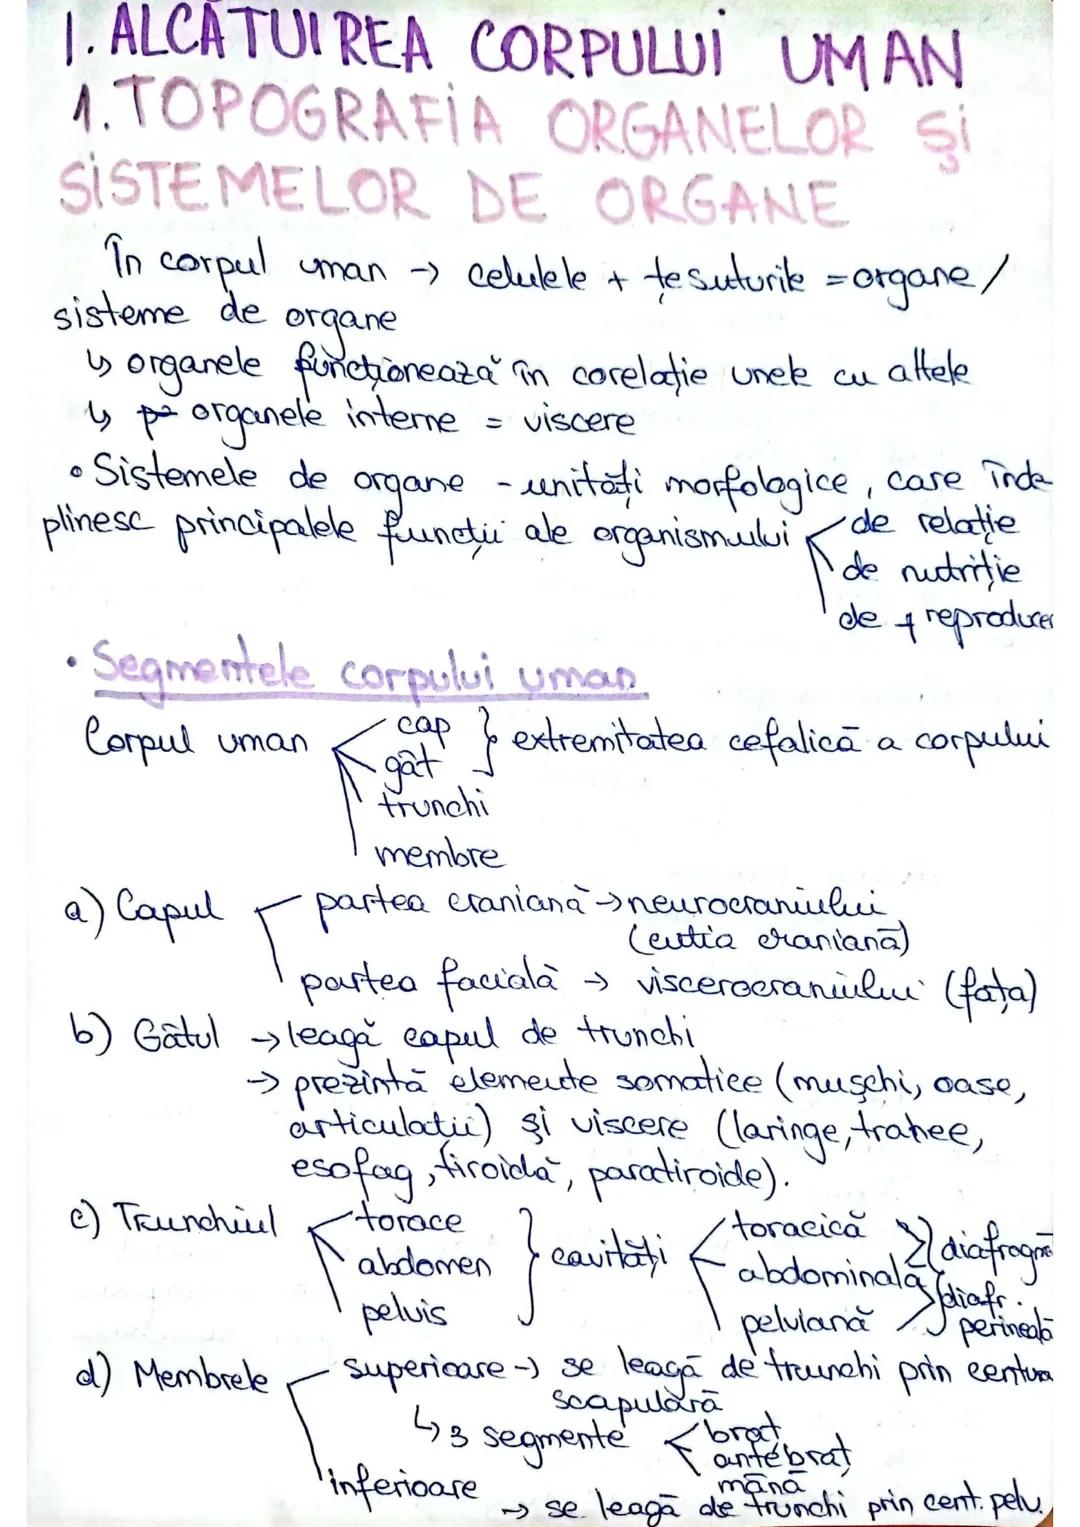 I. ALCĂTUIREA CORPULUI UMAN
1. TOPOGRAFIA ORGANELOR ȘI
SISTEMELOR DE ORGANE
În corpul uman → celulele + țesuturile = organe /
sisteme de organe
↳ organele funcționează în corelație unele cu altele
↳ organele interne = viscere
• Sistemele de organe - unități morfologice, care înde-
plinesc principalele funcții ale organismului
de relație
de nutriție
de reproducer
• Segmentele corpului uman
Corpul uman
cap
gât
} extremitatea cefalică a corpului
trunchi
membre
a) Capul
partea craniană → neurocraniului
(cutia craniană)
partea facială → viscerocraniului (fața)
b) Gâtul → leagă capul de trunchi
→ prezintă elemente somatice (mușchi, oase,
articulații) și viscere (laringe, trahee,
esofag, tiroidă, paratiroide).
c) Trunchiul
torace
abdomen
pelvis
} cavități
toracică
abdominală
pelviană
diafragmă
diafr.
perineală
d) Membrele
superioare → se leagă de trunchi prin centura
scapulară
↳ 3 segmente
braț
antebraț
mână
inferioare
→ se leagă de trunchi prin cent. pelv.